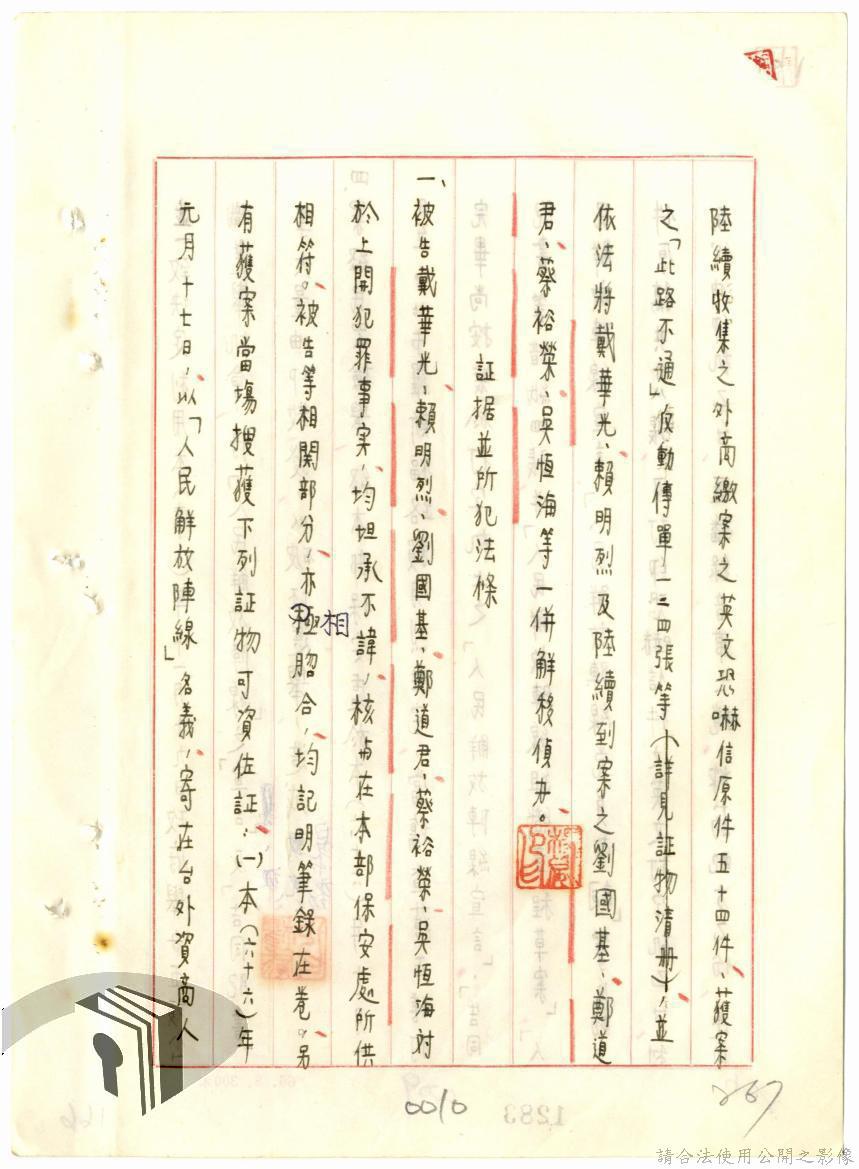 陸續收集之外商繳案之英文恐嚇信原件五十四件、獲案
之「此路不通」反動傳單一二四張等(詳見証物清册)，並
依法將戴華光、賴明烈及陸續到案之劉國基、鄭道
君、蔡裕榮、吳恆海等一併解移偵办。
証据並所犯法條
一、被告戴華光、賴明烈、劉國基、鄭道君、蔡裕榮、吳恆海对
於上開犯罪事実，均坦承不諱，核与在本部保安處所供
相符。被告等相関部分，亦極相脗合，均記明筆錄在卷。另
有獲案當場搜獲下列証物可資佐証：(一)本(六十六)年
元月十七日，以「人民解放陣線」名義，寄在台外資商人
267
0010
1283
請合法使用公開之影像